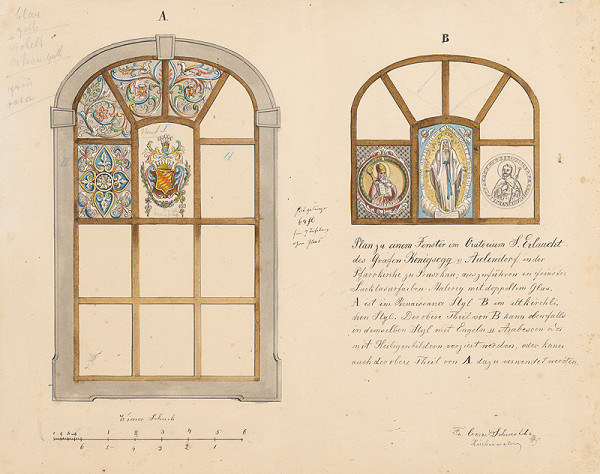 blau
gelb
violett
A.
B
11
6 4 fl
Plan zu einem Fenster im Oratorium S. Erlaucht
des Grafen Königsegg v Aulendorf, in der
Pfarrkirche zu auszuführen in feinster
Lacklasurfarben-Malerey mit doppeltem Glas.
A ist im Renaissance Styl B im altkirchli-
chen Styl. Der obere Theil von B kann ebenfalls
in demselben Styl mit Engeln u Arabescen oder
mit Heiligenbildern verziert werden, oder kann
auch der obere Theil von A dazu verwendet werden.
Wiener Schuh
1 2 3 4 5 6
6 5 4 3 2 1